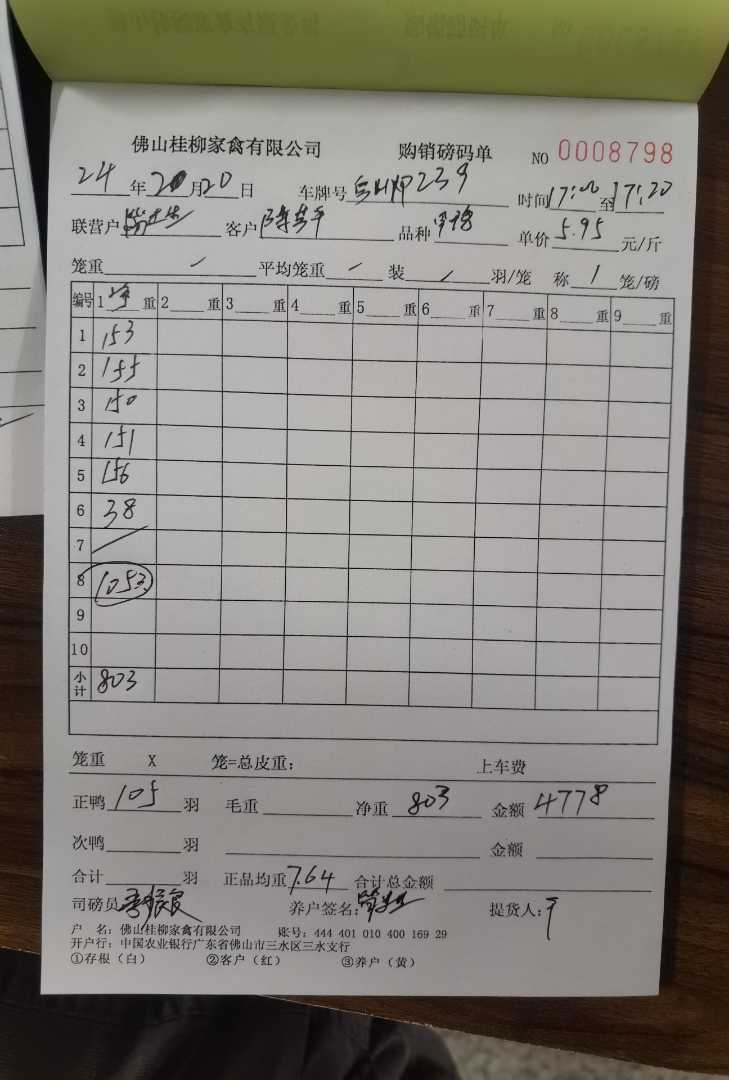 佛山桂柳家禽有限公司 购销磅码单 NO 0008798
24 年 月 20 日 车牌号 239 时间 17:00 至 17:20
联营户 客户 品种 单价 5.95 元/斤
笼重 / 平均笼重 / 装 / 羽/笼 称 1 笼/磅
编号 1 净 重 2 重 3 重 4 重 5 重 6 重 7 重 8 重 9 重
1 153
2 155
3 150
4 151
5 156
6 38
7 /
8 105只
9
10
小计 803
笼重 X 笼=总皮重: 上车费
正鸭 105 羽 毛重 净重 803 金额 4778
次鸭 羽 金额
合计 羽 正品均重 7.64 合计总金额
司磅员 养户签名: 提货人:
户 名: 佛山桂柳家禽有限公司 账号: 444 401 010 400 169 29
开户行: 中国农业银行广东省佛山市三水区三水支行
①存根(白) ②客户(红) ③养户(黄)